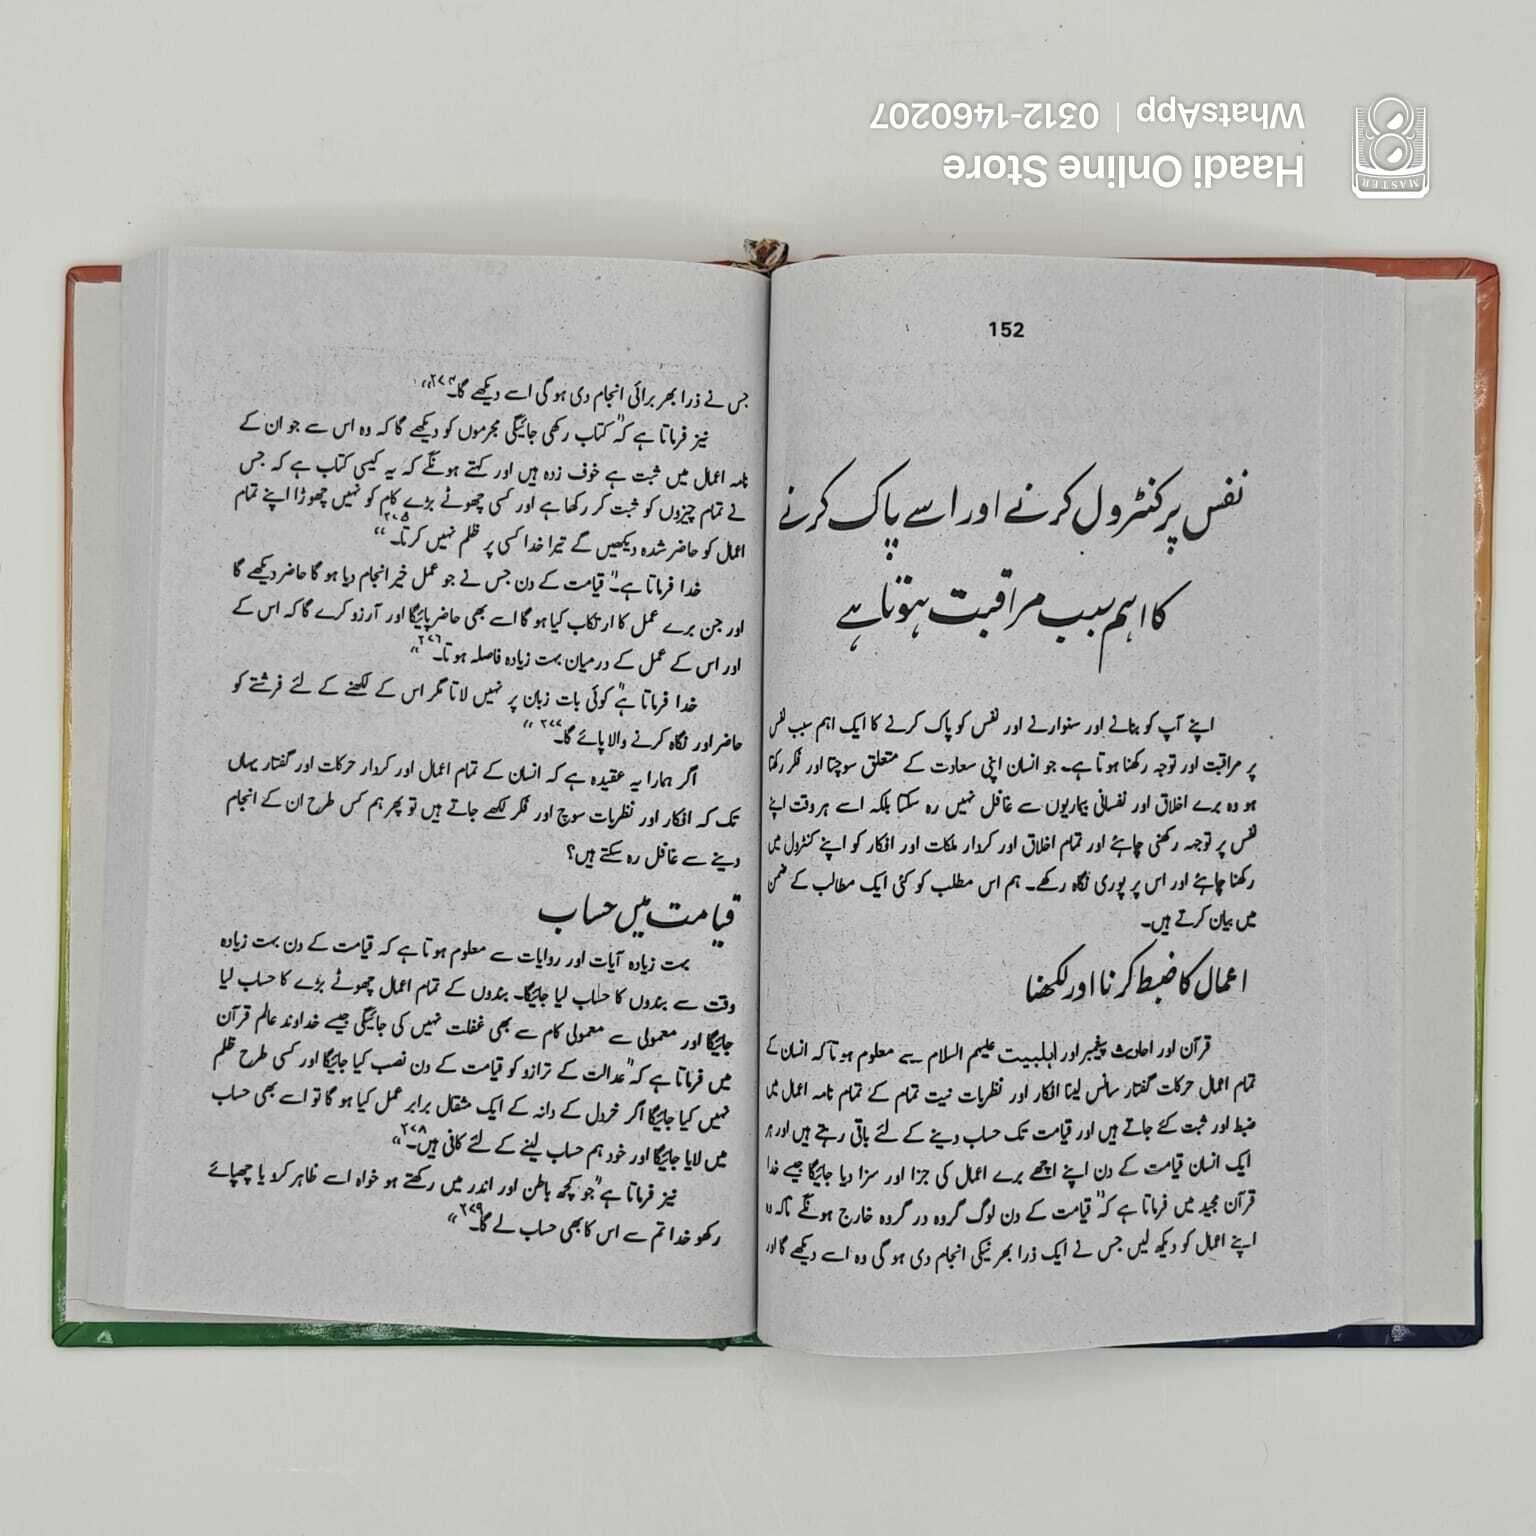 Haadi Online Store
WhatsApp | 0312-1460207
MASTER
152
نفس پر کنٹرول کرنے اور اسے پاک کرنے
کا اہم سبب مراقبت ہوتا ہے
اپنے آپ کو بنانے اور سنوارنے اور نفس کو پاک کرنے کا ایک اہم سبب نفس
پر مراقبت اور توجہ رکھنا ہوتا ہے۔ جو انسان اپنی سعادت کے متعلق سوچتا اور فکر رکھتا
ہو وہ برے اخلاق اور نفسانی بیماریوں سے غافل نہیں رہ سکتا بلکہ اسے ہر وقت اپنے
نفس پر توجہ رکھنی چاہئے اور تمام اخلاق اور کردار ملکات اور افکار کو اپنے کنٹرول میں
رکھنا چاہئے اور اس پر پوری نگاہ رکھے۔ ہم اس مطلب کو کئی ایک مطالب کے ضمن
میں بیان کرتے ہیں۔
اعمال کا ضبط کرنا اور لکھنا
قرآن اور احادیث پیغمبر اور اہلبیت علیہم السلام سے معلوم ہوتا کہ انسان کے
تمام اعمال حرکات گفتار سانس لینا افکار اور نظریات نیت تمام کے تمام نامہ اعمال میں
ضبط اور ثبت کئے جاتے ہیں اور قیامت تک حساب دینے کے لئے باقی رہتے ہیں اور ہر
ایک انسان قیامت کے دن اپنے اچھے برے اعمال کی جزا اور سزا دیا جائیگا جیسے خدا
قرآن مجید میں فرماتا ہے کہ” قیامت کے دن لوگ گروہ در گروہ خارج ہونگے تاکہ وہ
اپنے اعمال کو دیکھ لیں جس نے ایک ذرا بھر نیکی انجام دی ہو گی وہ اسے دیکھے گا اور
جس نے ذرا بھر برائی انجام دی ہو گی اسے دیکھے گا۔۲۷۴“
نیز فرماتا ہے کہ” کتاب رکھی جائیگی مجرموں کو دیکھے گا کہ وہ اس سے جو ان کے
نامہ اعمال میں ثبت ہے خوف زدہ ہیں اور کہتے ہونگے کہ یہ کیسی کتاب ہے کہ جس
نے تمام چیزوں کو ثبت کر رکھا ہے اور کسی چھوٹے بڑے کام کو نہیں چھوڑا اپنے تمام
اعمال کو حاضر شدہ دیکھیں گے تیرا خدا کسی پر ظلم نہیں کرتا۔۲۷۵“
خدا فرماتا ہے۔” قیامت کے دن جس نے جو عمل خیر انجام دیا ہو گا حاضر دیکھے گا
اور جن برے عمل کا ارتکاب کیا ہو گا اسے بھی حاضر پائیگا اور آرزو کرے گا کہ اس کے
اور اس کے عمل کے درمیان بہت زیادہ فاصلہ ہوتا۔۲۷۶“
خدا فرماتا ہے” کوئی بات زبان پر نہیں لاتا مگر اس کے لکھنے کے لئے فرشتے کو
حاضر اور نگاہ کرنے والا پائے گا۔۲۷۷“
اگر ہمارا یہ عقیدہ ہے کہ انسان کے تمام اعمال اور کردار حرکات اور گفتار یہاں
تک کہ افکار اور نظریات سوچ اور فکر لکھے جاتے ہیں تو پھر ہم کس طرح ان کے انجام
دینے سے غافل رہ سکتے ہیں؟
قیامت میں حساب
بہت زیادہ آیات اور روایات سے معلوم ہوتا ہے کہ قیامت کے دن بہت زیادہ
وقت سے بندوں کا حساب لیا جائیگا۔ بندوں کے تمام اعمال چھوٹے بڑے کا حساب لیا
جائیگا اور معمولی سے معمولی کام سے بھی غفلت نہیں کی جائیگی جیسے خداوند عالم قرآن
میں فرماتا ہے کہ” عدالت کے ترازو کو قیامت کے دن نصب کیا جائیگا اور کسی طرح ظلم
نہیں کیا جائیگا اگر خردل کے دانہ کے ایک مثقال برابر عمل کیا ہو گا تو اسے بھی حساب
میں لایا جائیگا اور خود ہم حساب لینے کے لئے کافی ہیں۔۲۷۸“
نیز فرماتا ہے” جو کچھ باطن اور اندر میں رکھتے ہو خواہ اسے ظاہر کرو یا چھپائے
رکھو خدا تم سے اس کا بھی حساب لے گا۔۲۷۹“